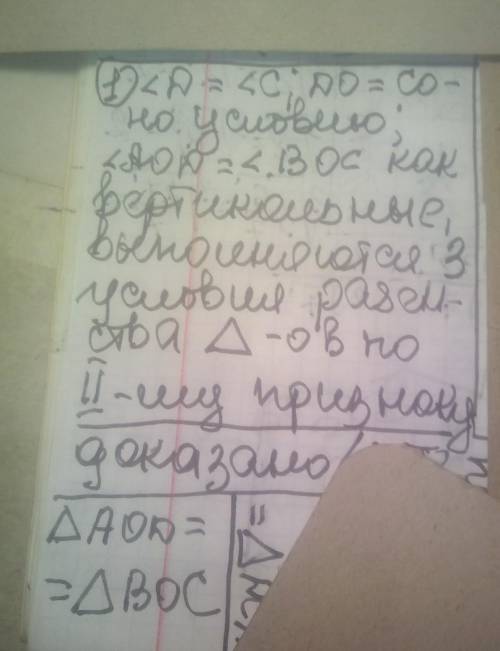 ① <D = <C; DO = CO -
по условию;
<AOD = <.BOC как
вертикальные,
выполняются 3
условия равен-
ства △-ов по
II-му признаку
доказано
△AOD =
= △BOC
= △